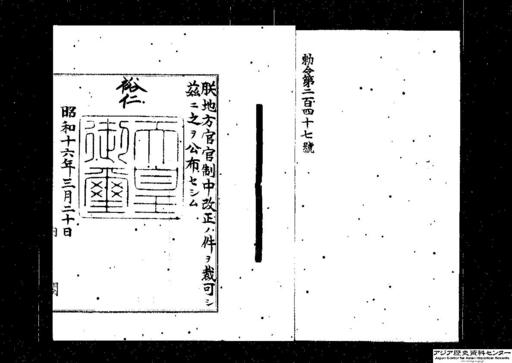 勅令第二百四十七號
朕地方官官制中改正ノ件ヲ裁可シ
茲ニ之ヲ公布セシム
裕仁
天皇
御璽
昭和十六年三月二十日
アジア歴史資料センター
Japan Center for Asian Historical Records